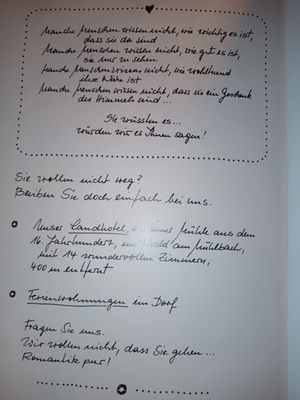 Manche Menschen wissen nicht, wie wichtig es ist,
dass sie da sind
Manche Menschen wissen nicht, wie gut es ist,
sie nur zu sehen
Manche Menschen wissen nicht, wie wohltuend
ihre Nähe ist
Manche Menschen wissen nicht, dass sie ein Geschenk
des Himmels sind...
Sie wüssten es...
würden wir es Ihnen sagen!
Sie wollen nicht weg?
Bleiben Sie doch einfach bei uns.
Unser Landhotel, in einer Mühle aus dem
16. Jahrhundert, im Wald am Mühlbach,
mit 14 wundervollen Zimmern,
400 m entfernt
Ferienwohnungen im Dorf
Fragen Sie uns.
Wir wollen nicht, dass Sie gehen...
Romantik pur!